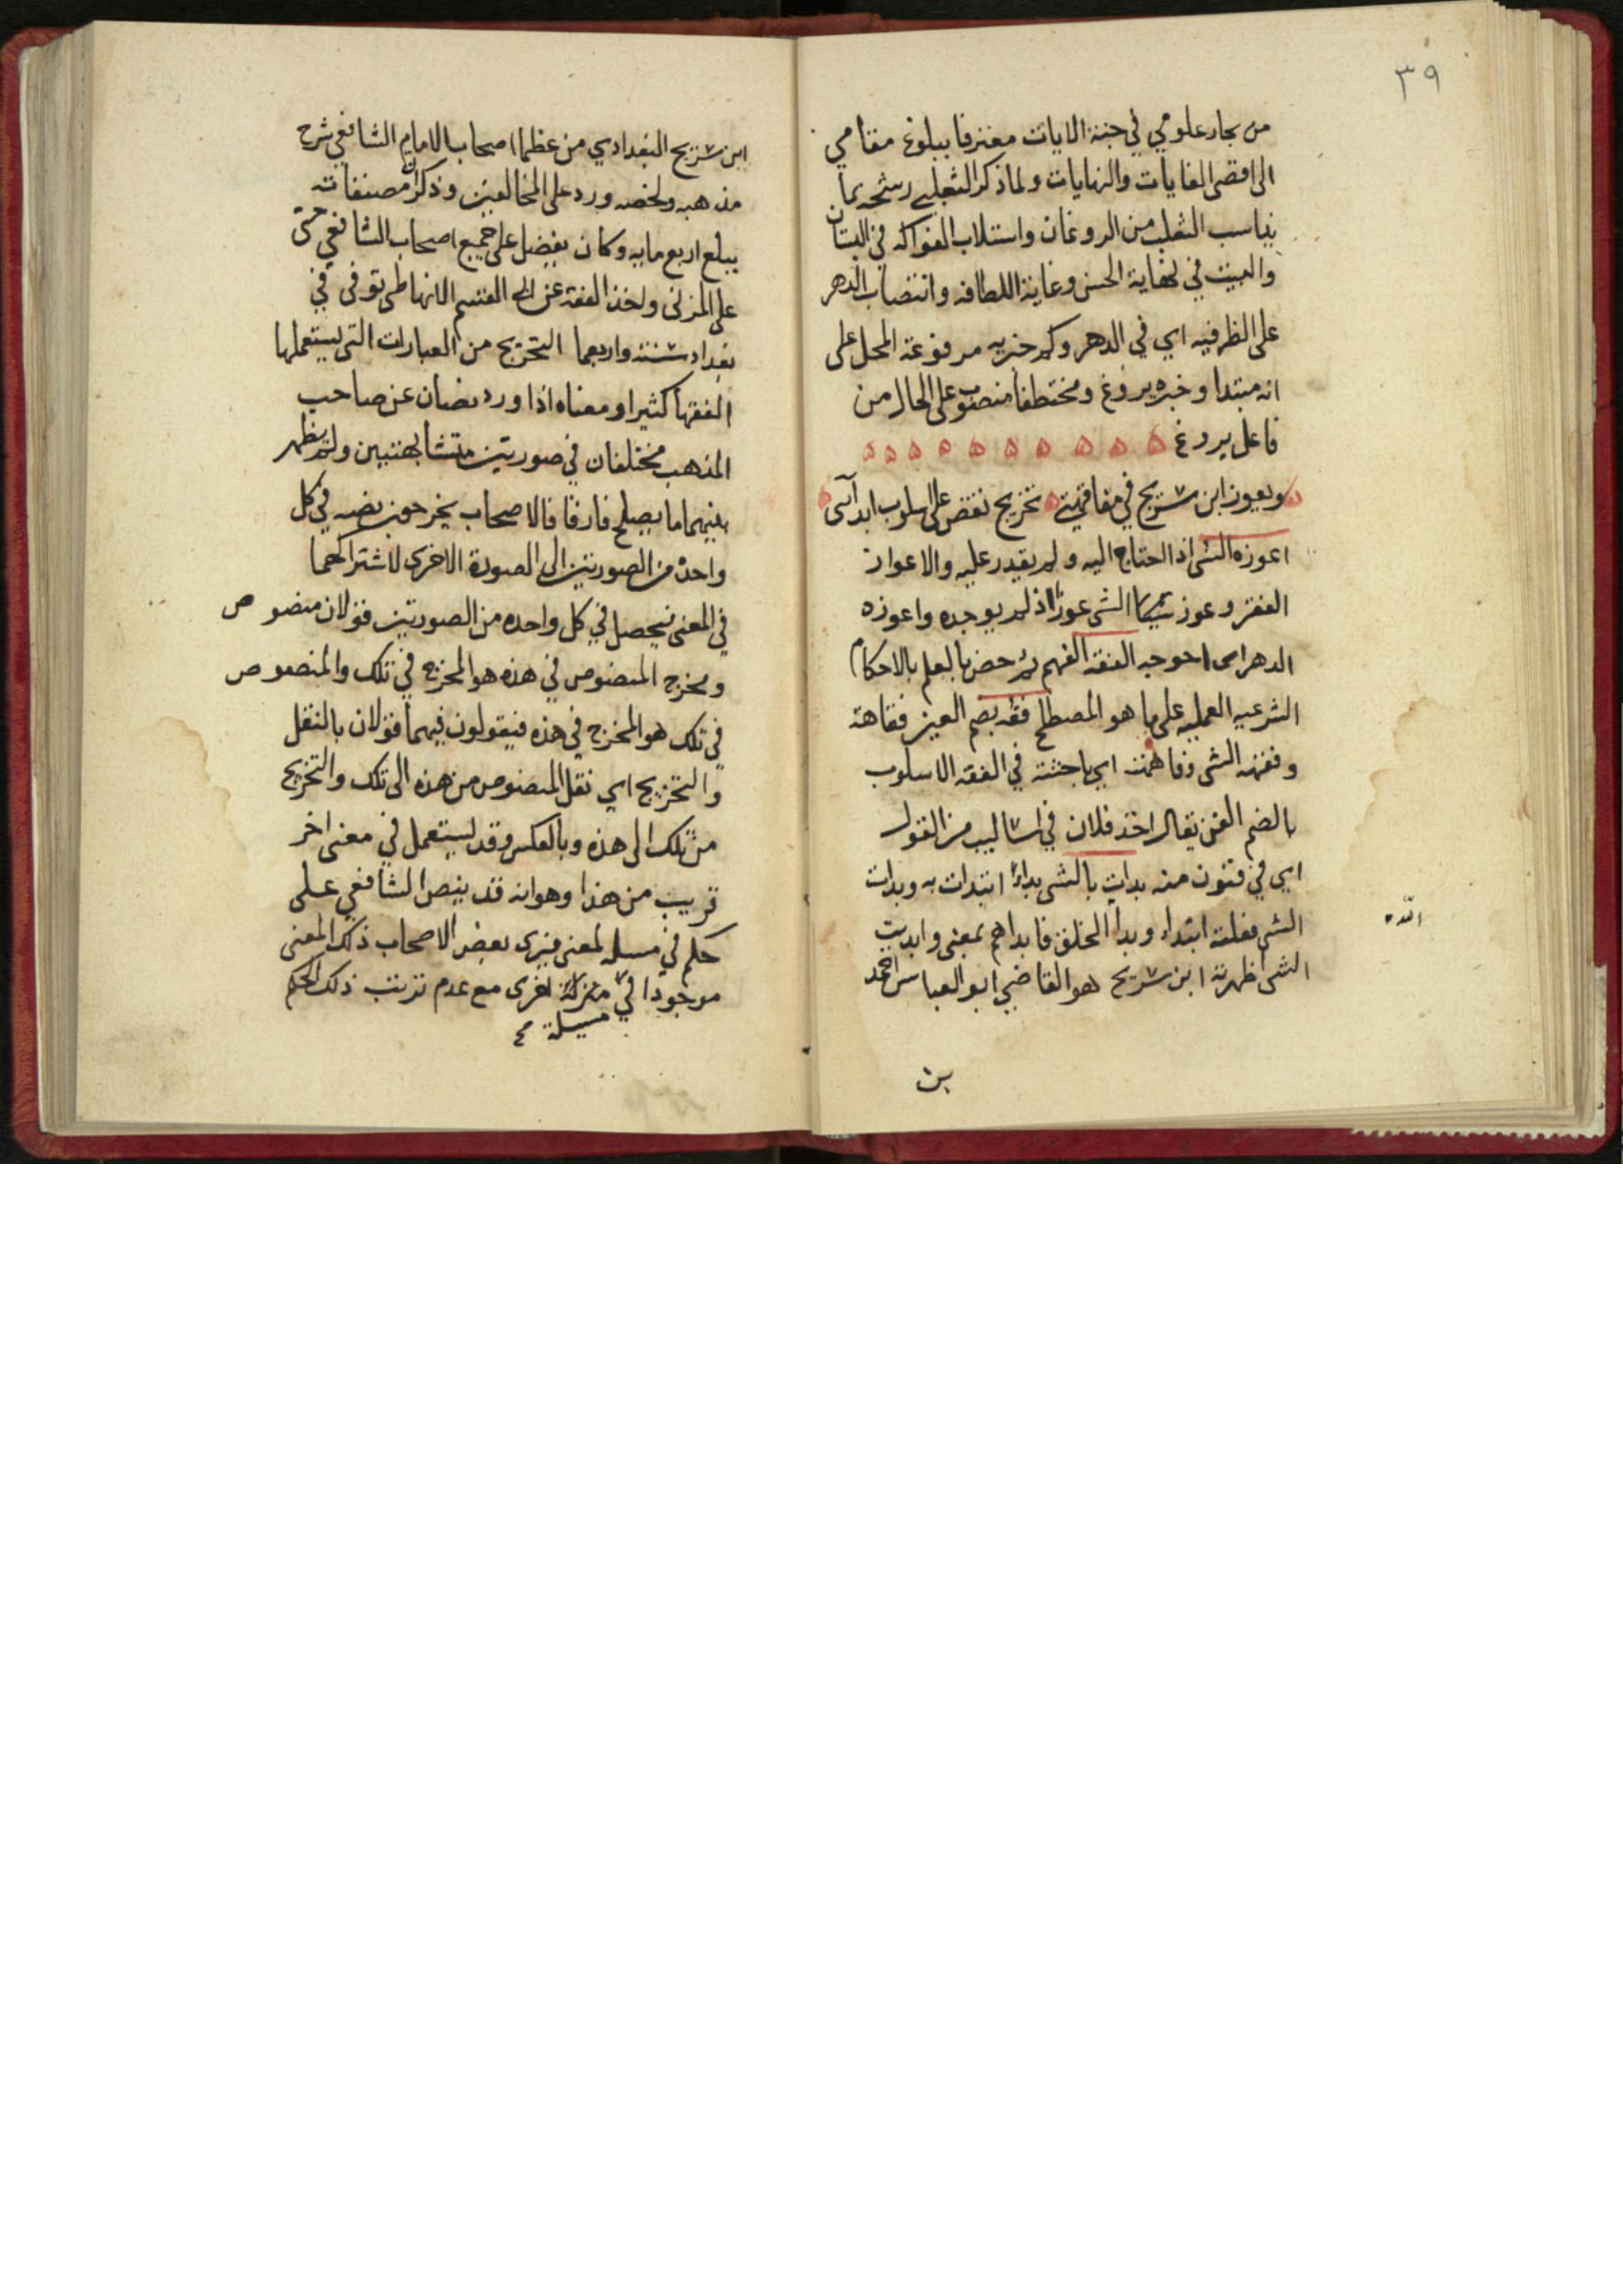 ٣٩
من بحار علومي في جنة الايات معترفا ببلوغ مقامي
الى اقصى الغايات والنهايات ولما ذكر الثعلبي رشحه بما
يناسب الثعلب من الروغان واستلاب الفواكه في البستان
والبيت في نهاية الحسن وغاية اللطافه وانتصاب الدهر
على الظرفيه اي في الدهر وكم خبريه مرفوعة المحل على
انه مبتدا وخبره يروغ ومختطفا منصوب على الحال من
فاعل يروغ ه ه ه ه ه ه ه ه ه ه
ويعوز ابن سريج في مفاقهتي ه تخريج نقض على اسلوب ابدآئى ه
اعوزه الشى اذا احتاج اليه ولم يقدر عليه والاعواز
الفقر وعوز الشى عوزا اذ لم يوجده واعوزه
الدهر اى احوجه الفقه الفهم ثم خص بالعلم بالاحكام
الشرعيه العمليه على ما هو المصطلح فقه بضم العين فقاهة
وفقه الشى وفاهمته اي باحثته في الفقه الاسلوب
بالضم الفن يقال اخذ فلان في اساليب من القول
اي في فنون منه بدات بالشى بداءً ابتدات به وبدات
الشى فعلته ابتداء وبدا الخلق فابداهم بمعنى وابديت
الله
الشى اظهرته ابن سريج هو القاضي ابو العباس احمد
بن
ابن سريج البغدادي من عظما اصحاب الامام الشافعي شرح
مذهبه ولخصه ورد على المخالفين وذكر ان مصنفاته
يبلغ اربع مايه وكان يفضل على جميع اصحاب الشافعي حتى
على المزنى واخذ الفقه عن ابي القسم الانماطى توفى في
بغداد سنة واربعما التخريج من العبارات التى يستعملها
الفقها كثيرا ومعناه اذا ورد نصان عن صاحب
المذهب مختلفان في صورتين متشابهتين ولم يظهر
بينهما ما يصلح فارقا فالاصحاب يخرجون نصه في كل
واحدة من الصورتين الى الصورة الاخرى لاشتراكهما
في المعنى فيحصل في كل واحده من الصورتين قولان منصوص
ومخرج المنصوص في هذه هو المخرج في تلك والمنصوص
في تلك هو المخرج في هذه فيقولون فيهما قولان بالنقل
والتخريج اي نقل المنصوص من هذه الى تلك والتخريج
من تلك الى هذه وبالعكس وقد يستعمل في معنى اخر
قريب من هذا وهو انه قد ينص الشافعي على
حكم في مسله لمعنى فيرى بعض الاصحاب ذلك المعنى
موجودا في منزلة اخرى مع عدم ترتب ذلك الحكم
مسيلة